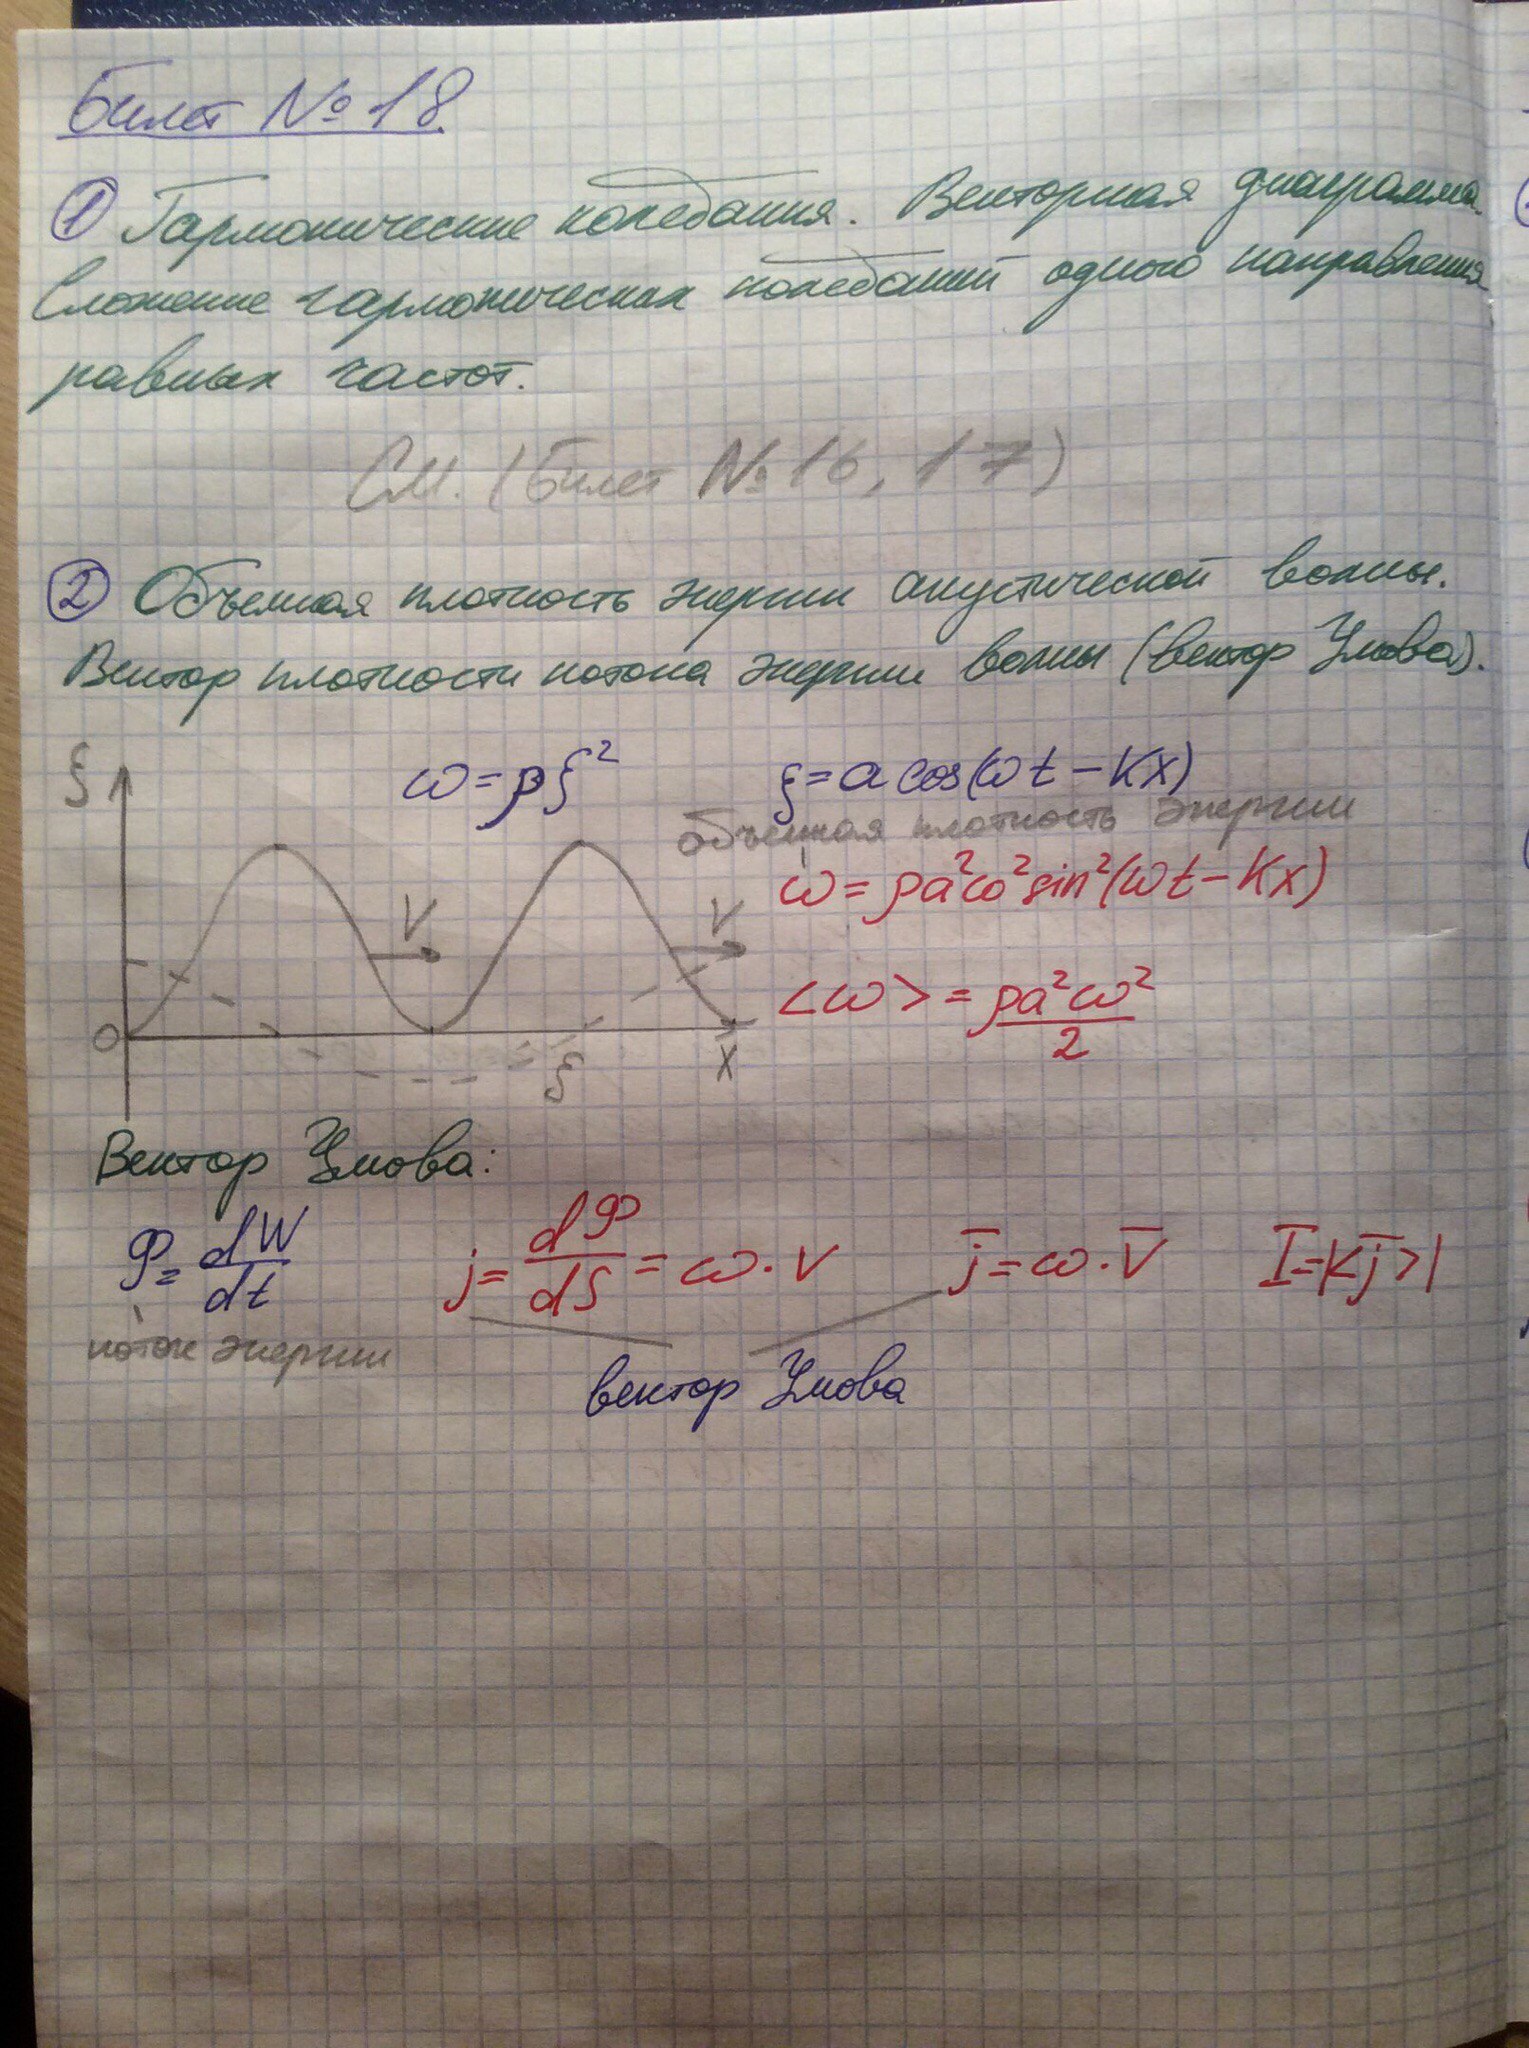 Билет № 18
① Гармонические колебания. Векторная диаграмма.
Сложение гармонических колебаний одного направления
равных частот.
См. (Билет № 16, 17)
② Объемная плотность энергии акустической волны.
Вектор плотности потока энергии волны (вектор Умова).
ξ
ω = ρξ²
ξ = a cos(ωt - kx)
объемная плотность энергии
ω = ρa²ω² sin²(ωt - kx)
V V
<ω> = ρa²ω²/2
0 ξ X
Вектор Умова:
Φ = dW/dt
j = dΦ/dS = ω · v
j̅ = ω · V̅
I = |<j̅>|
поток энергии
вектор Умова